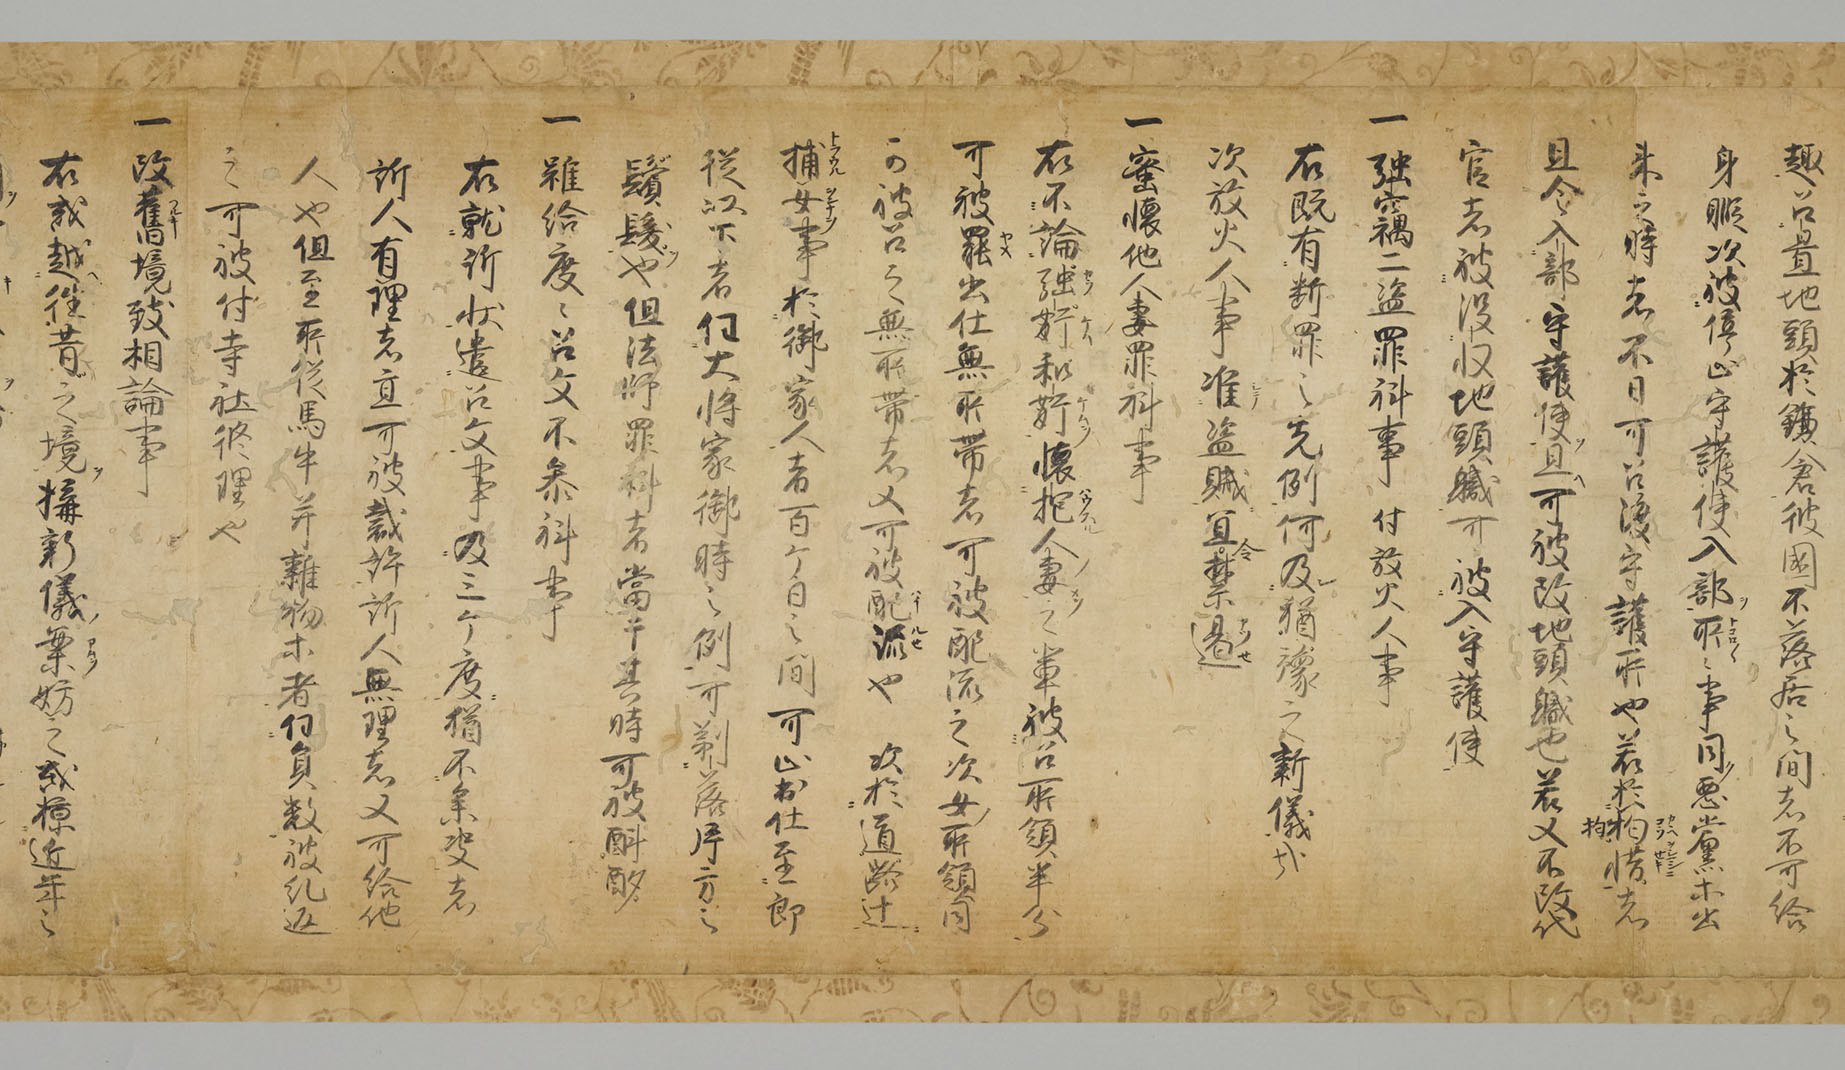 趣召置地頭於鎌倉彼國不落居之間者不可給
身暇次被停止守護使入部所々事同悪黨木出
来之時者不日可召渡守護所也若於拘惜者
且令入部守護使且可被改地頭職也若又不改代
官者被没収地頭職可被入守護使
一 強竊二盗罪科事 付放火人事
右既有断罪之先例何及猶豫之新儀哉
次放火人事准盗賊宜令禁遏
一 密懐他人妻罪科事
右不論強奸和奸懐抱人妻之輩被召所領半分
可被罷出仕無所帯者可被配流之次女所領同
可被召之無所帯者又可被配流也 次於道路辻
捕女事於御家人者百ケ日之間可止出仕至郎
従以下者任大将家御時之例可剃落片方之
鬢髪也但法師罪科者當于其時可被斟酌
一 雖給度々召文不参科事
右就訴状遣召文事及三ケ度猶不参決者
訴人有理者直可被裁許訴人無理者又可給他
人也但至所従馬牛并雜物木者任員数被糺返
之可被付寺社修理也
一 改舊境致相論事
右或越往昔之境構新儀案妨之或掠近年之